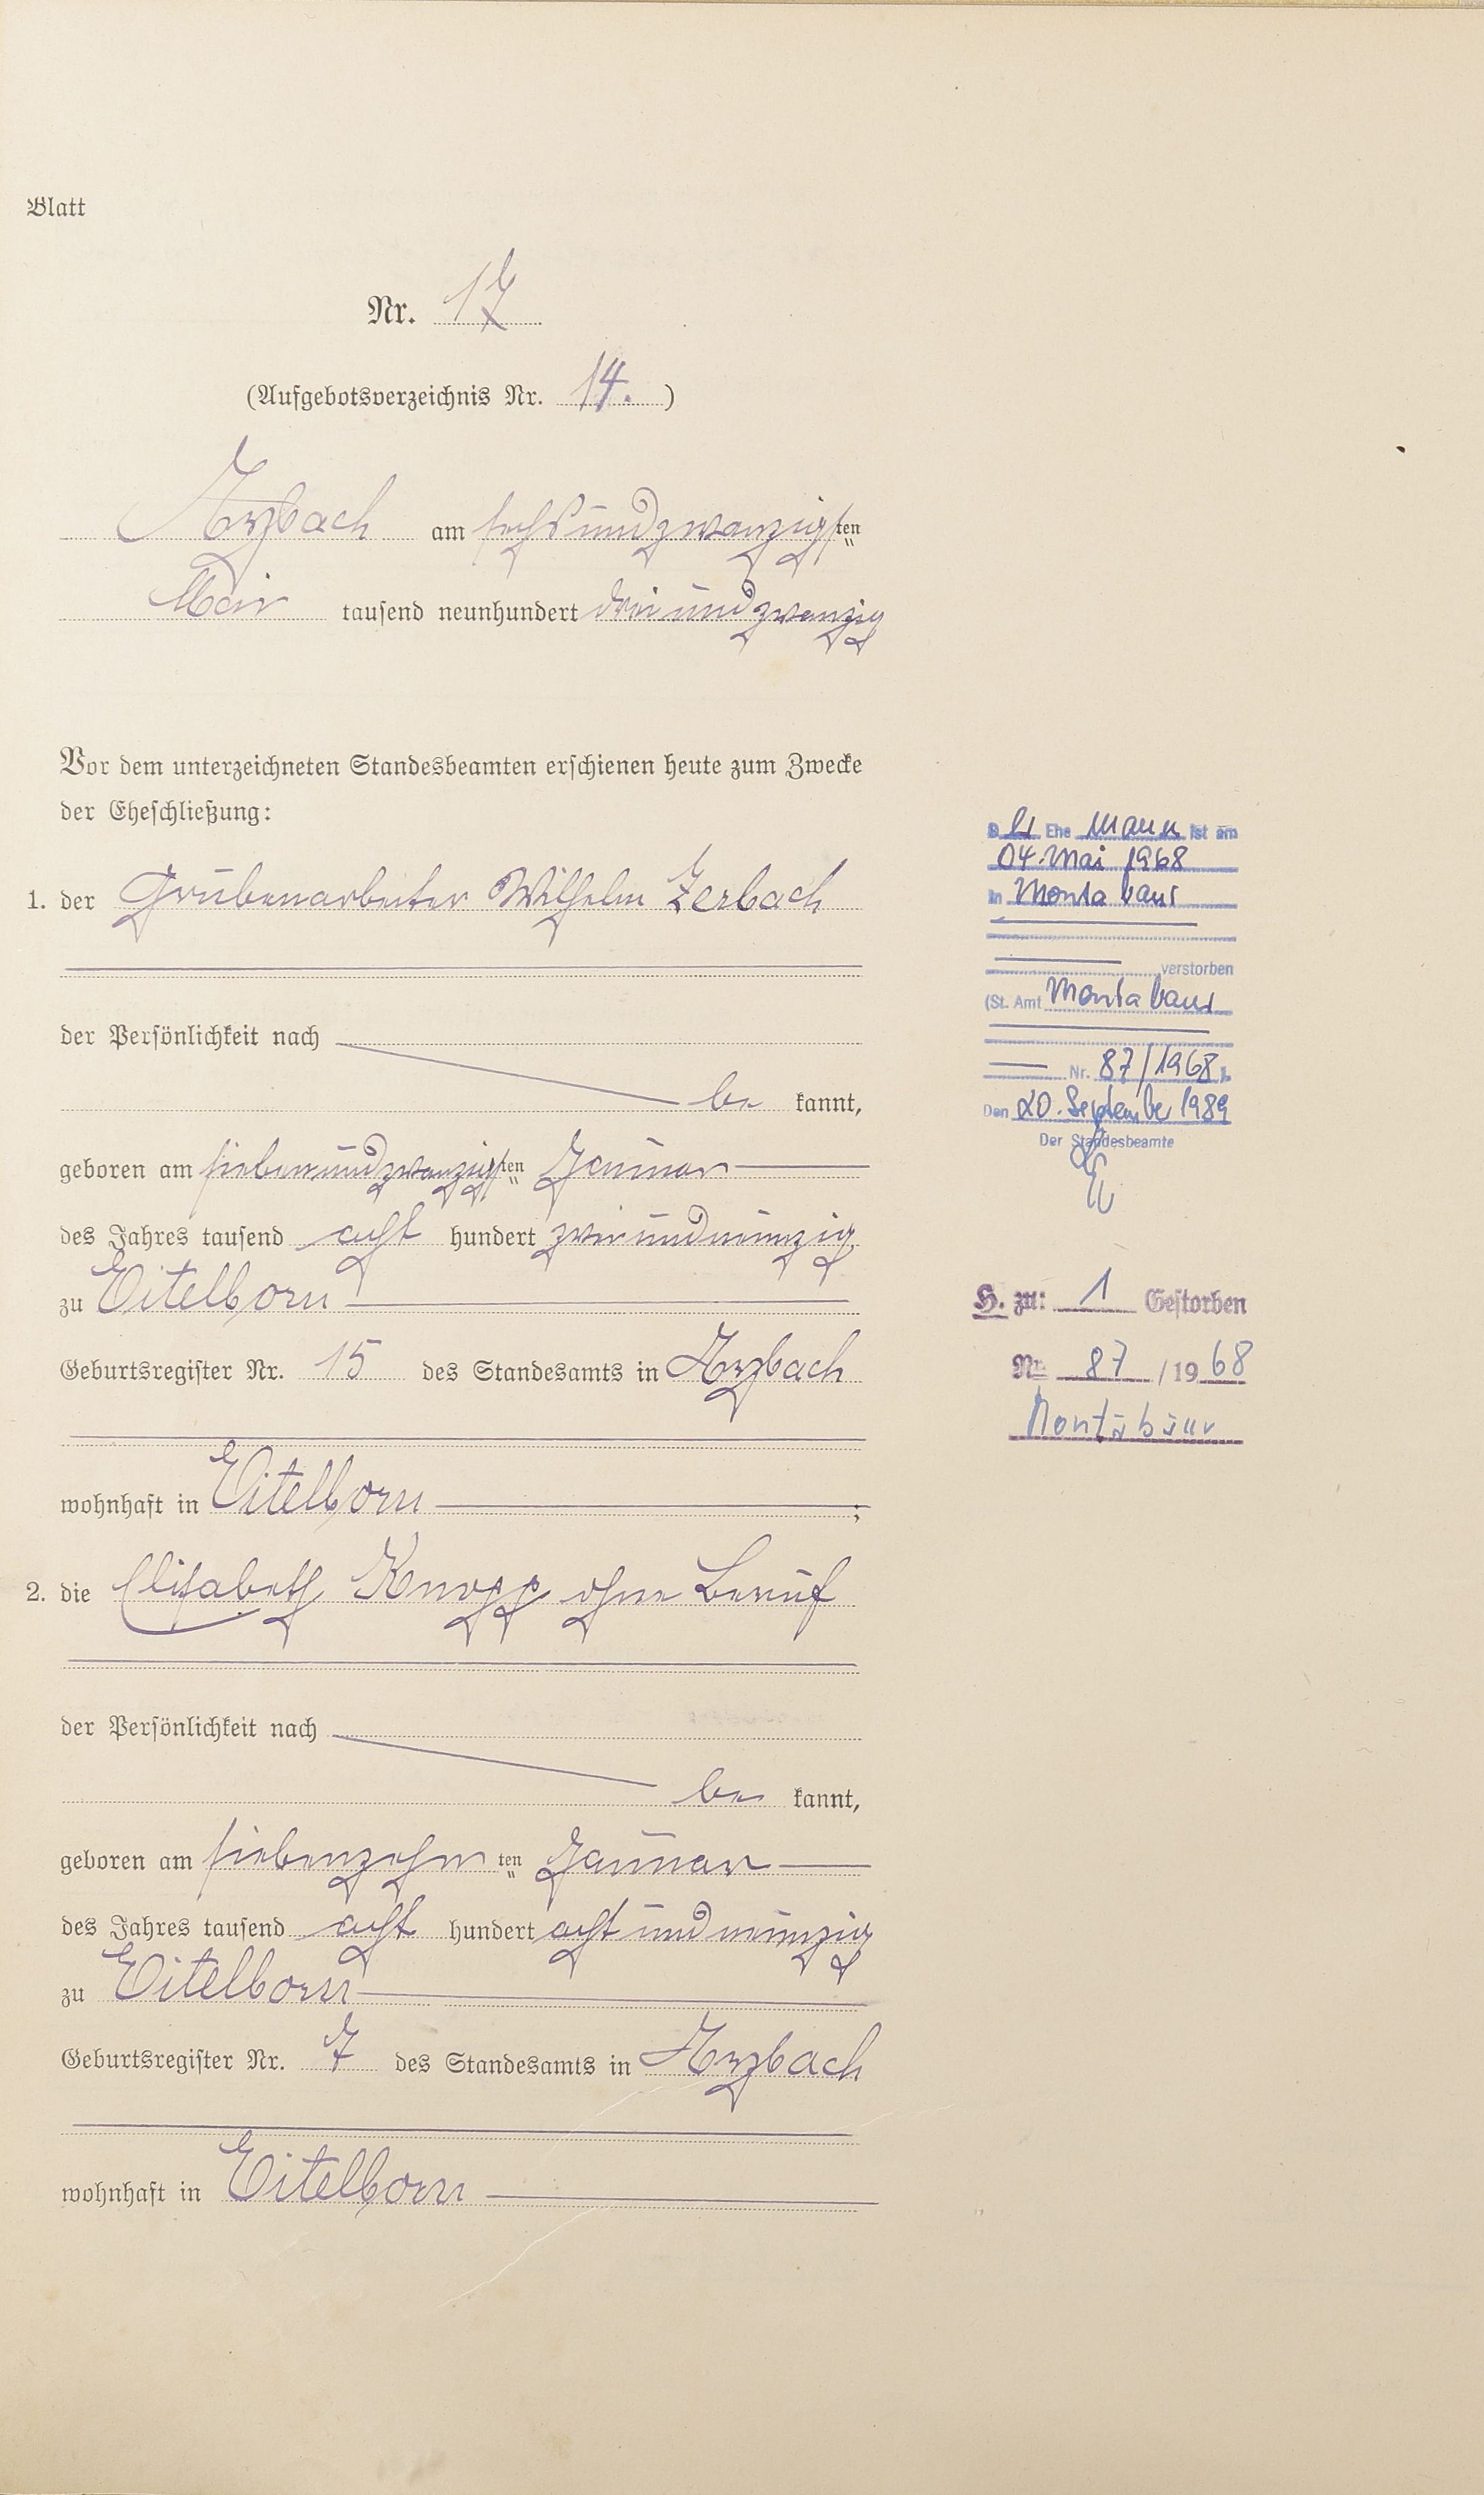 Blatt
Nr. 17
(Aufgebotsverzeichnis Nr. 14. )
Arzbach am sechsundzwanzigsten
Mai tausend neunhundert dreiundzwanzig
Vor dem unterzeichneten Standesbeamten erschienen heute zum Zwecke
der Eheschließung:
1. der Grubenarbeiter Wilhelm Zerbach
der Persönlichkeit nach
be kannt,
geboren am siebenundzwanzigsten Januar
des Jahres tausend acht hundert zweiundneunzig
zu Eitelborn
Geburtsregister Nr. 15 des Standesamts in Arzbach
wohnhaft in Eitelborn ;
2. die Elisabeth Knopp ohne Beruf
der Persönlichkeit nach
be kannt,
geboren am siebenzehnten Januar
des Jahres tausend acht hundert acht und neunzig
zu Eitelborn
Geburtsregister Nr. 7 des Standesamts in Arzbach
wohnhaft in Eitelborn
D er Ehe mann ist am
04. Mai 1968
in Montabaur
verstorben
(St. Amt Montabaur
Nr. 87/1968 ).
Den 20. September 1989
Der Standesbeamte
H. zu: 1 Gestorben
Nr. 87 / 19 68
Montabaur